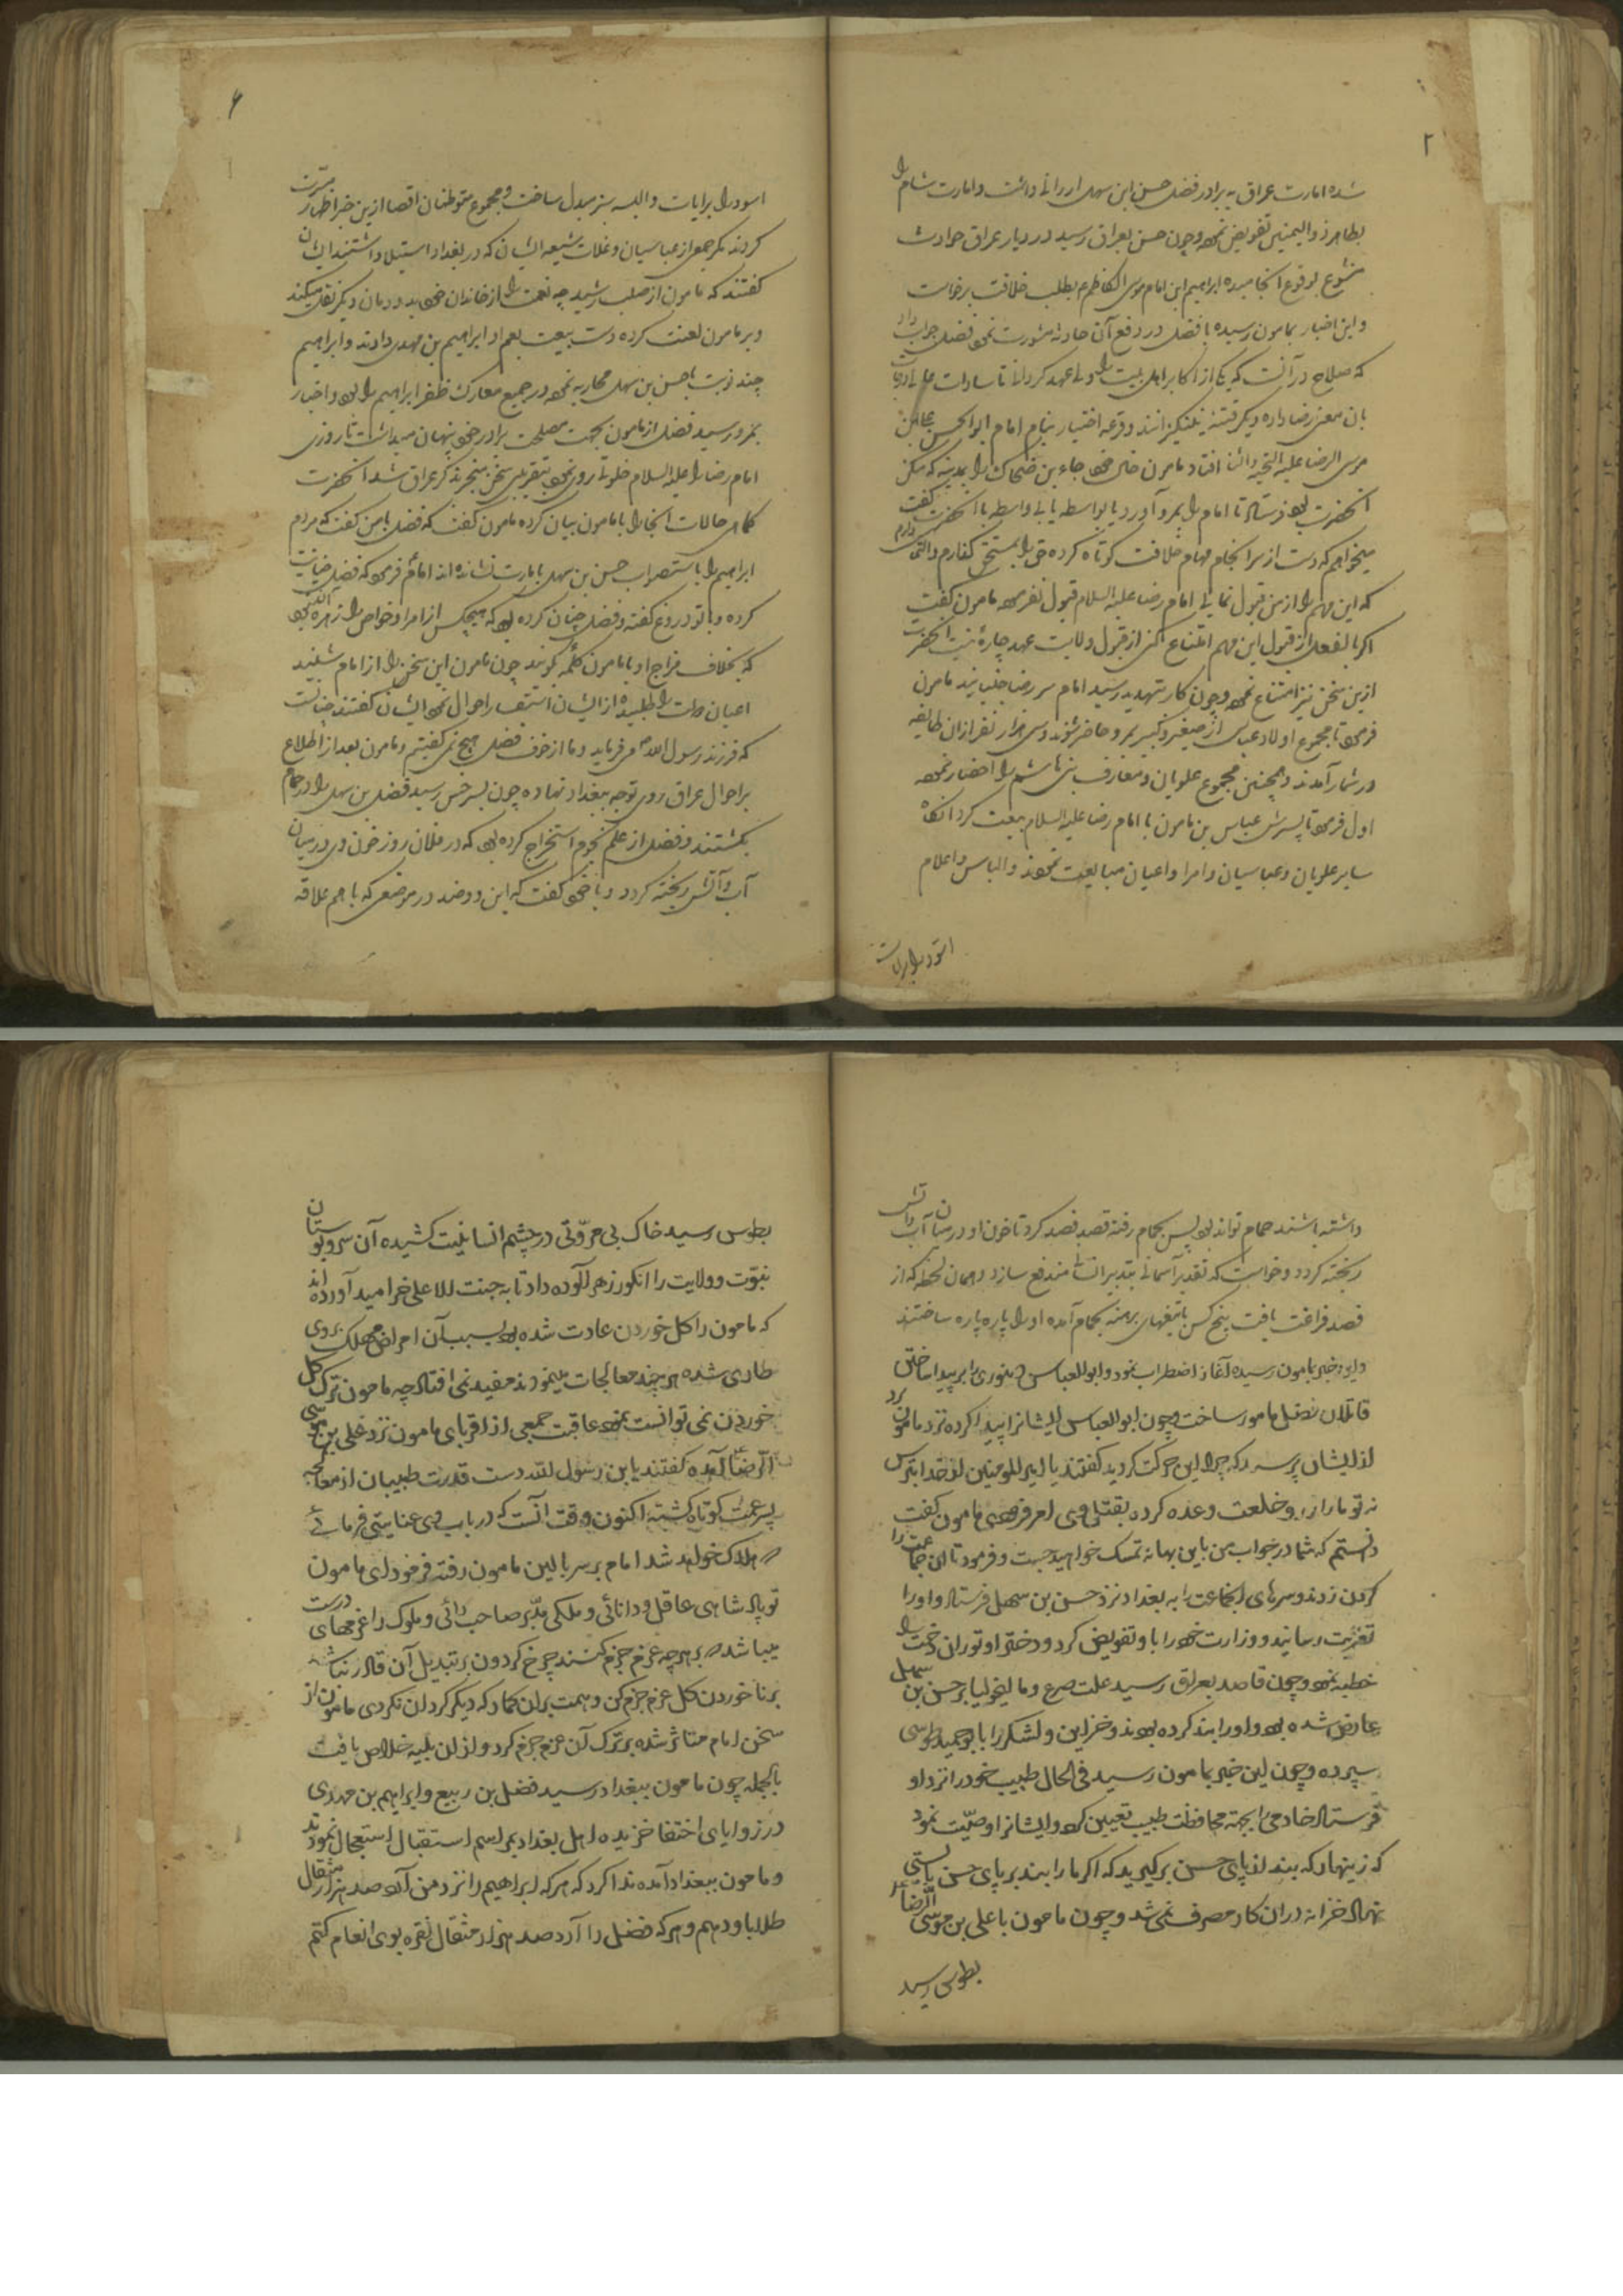 ۲
شده امارت عراق به برادر فضل حسن ابن سهل ارزانی داشت و امارت شام را
بطاهر ذوالیمنین تفویض نموده و چون حسن بعراق رسید در دیار عراق حوادث
متنوع بوقوع انجامیده ابراهیم ابن امام موسی الکاظم ع بطلب خلافت برخاست
و این اخبار بمامون رسیده با فضل در دفع آن حادثه مشورت نموده فضل جواب داد
که صلاح در آنست که یکی از اکابر اهل بیت را ولی عهد کردانی تا سادات
بان معنی رضا داده دیکر فتنه نینکیزانند و قرعه اختیار بنام امام ابوالحسن علی بن
موسی الرضا علیه التحیة والثنا افتاد مامون خال خود رجاء بن ضحاک را بمدینه که مسکن
انحضرت بود فرستاد تا امام را بمرو آورد و با واسطه یا بی واسطه با انحضرت کفت
میخواهم که دست از سرانجام مهام خلافت کوتاه کرده حق را بمستحق کذارم و التماس دارم
که این مهم را از من قبول نمائی امام رضا علیه السلام قبول نفرمود مامون کفت
اکر بالفعل از قبول این مهم امتناع کنی از قبول ولایت عهد چاره نیست انحضرت
ازین سخن نیز امتناع نموده و چون کار بتهدید رسید امام سر رضا جنبانید مامون
فرمود تا مجموع اولاد عباس از صغیر و کبیر بمرو حاضر شوند و سی هزار نفر از ان طایفه
در شمار آمدند و همچنین مجموع علویان و معارف بنی هاشم را احضار نموده
اول فرمود تا پسرش عباس بن مامون با امام رضا علیه السلام بیعت کرد انکاه
سایر علویان و عباسیان و امرا و اعیان مبایعت نمودند و الباس و اعلام
اسود را برایات
۶
اسود را برایات و البسه سبز مبدل ساخت و مجموع متوطنان اقصا ازین خبر اظهار مسرت
کردند مکر جمعی از عباسیان و غلات شیعه ایشان که در بغداد استیلا داشتند ایشان
کفتند که مامون از صلب رشید چه نعمت را از خاندان خود بدودمان دیکر نقل میکند
و بر مامون لعنت کرده دست بیعت بعم او ابراهیم بن مهدی دادند و ابراهیم
چند نوبت با حسن بن سهل محاربه نموده در جمیع معارک ظفر ابراهیم را بود و اخبار
بمرو رسید فضل از مامون بجهت مصلحت برادر خود پنهان میداشت تا روزی
امام رضا را علیه السلام خلوتی روی نمود بتقریبی سخن منجر بذکر عراق شد انحضرت
کماهی حالات انجا را با مامون بیان کرده مامون کفت که فضل با من کفت که مردم
ابراهیم را باستصواب حسن بن سهل بامارت نشانده اند امام فرمود که فضل خیانت
کرده و با تو دروغ کفته و فضل چنان کرده بود که هیچکس از امرا و خواص را زهره آن نبود
که بخلاف مزاج او با مامون کلمه کویند چون مامون این سخن را از امام شنید
اعیان دولت را طلبیده از ایشان استفسار احوال نمود ایشان کفتند چنانست
که فرزند رسول الله می فرماید و ما از خوف فضل هیچ نمی کفتیم و مامون بعد از اطلاع
بر احوال عراق روی توجه ببغداد نهاده چون بسرخس رسید فضل بن سهل را در حمام
بکشتند و فضل از علم نجوم استخراج کرده بود که در فلان روز خون وی در میان
آب و آتش ریخته کردد و با خود کفت که این دو ضد در موضعی که با هم علاقه
داشته باشند حمام تواند بود پس بحمام رفته قصد فصد کرد تا خون او در میان آب و آتش
ریخته کردد و خواست که تقدیر آسمانی بتدبیر انسانی مندفع سازد و همان لحظه که از
فصد فراغت یافت پنج کس با تیغهای برهنه بحمام آمده او را پاره پاره ساختند
و این خبر بمامون رسیده آغاز اضطراب نمود و ابوالعباس دینوری را بر پیدا ساختن
قاتلان فضل مامور ساخت و چون ابوالعباس ایشانرا پیدا کرده نزد مامون برد
از ایشان پرسید که چرا این حرکت کردید کفتند یا امیر المومنین از خدا بترس
نه تو ما را زر و خلعت وعده کرده بقتل وی امر فرمودی مامون کفت
دانستم که شما در جواب من باین بهانه تمسک خواهید جست و فرمود تا ان جماعت را
کردن زدند و سرهای انجماعت را به بغداد نزد حسن بن سهل فرستاد و او را
تعزیت رسانید و وزارت خود را باو تفویض کرد و دختر او توران دخت را
خطبه نمود و چون قاصد بعراق رسید علت صرع و مالیخولیا بر حسن بن سهل
عارض شده بود و او را بند کرده بودند و خزاین و لشکر را بابو حمید طوسی
سپرده و چون این خبر بمامون رسید فی الحال طبیب خود را نزد او
فرستاد خادمی را بجهة محافظت طبیب تعیین کرد و ایشانرا وصیت نمود
که زینهار که بند از پای حسن برکیرید که اکر ما را بند بر پای حسن بایستی
نهاد خزانه در ان کار مصرف نمی شد و چون مامون با علی بن موسی الرضا
بطوس رسید
بطوس رسید خاک بی مروتی در چشم انسانیت کشیده آن سرو بوستان
نبوت و ولایت را انکور زهر آلوده داد تا به جنت الاعلی خرامید آورده اند
که مامون را کل خوردن عادت شده بود بسبب آن امراض مهلک بروی
طاری شده هر چند معالجات مینمودند مفید نمی افتاد چه مامون ترک کل
خوردن نمی توانست نمود عاقبت جمعی از اقربای مامون نزد علی بن موسی
الرضا آمده کفتند یا بن رسول الله دست قدرت طبیبان از معالجه
پسر عمت کوتاه کشته اکنون وقت آنست که در باب وی عنایتی فرمائی
هلاک خواهد شد امام بر سر بالین مامون رفته فرمود ای مامون
تو پادشاهی عاقل و دانائی و ملکی مدبر صاحب رائی و ملوک را عزمهای درست
میباشد بر هر چه عزم جزم کنند چرخ کردون بر تبدیل آن قادر نباشد
بر ناخوردن کل عزم جزم کن و همت بران کمار که دیکر کرد ان نکردی مامون از
سخن امام متاثر شده بر ترک آن عزم جزم کرد و از ان بلیه خلاص یافت
بالجمله چون مامون ببغداد رسید فضل بن ربیع و ابراهیم بن مهدی
در زوایای اختفا خزیده اهل بغداد بمراسم استقبال استعجال نمودند
و مامون ببغداد آمده ندا کرد که هر که ابراهیم را نزد من آرد صد هزار مثقال
طلا باو دهم و هر که فضل را آرد صد هزار مثقال نقره بوی انعام کنم